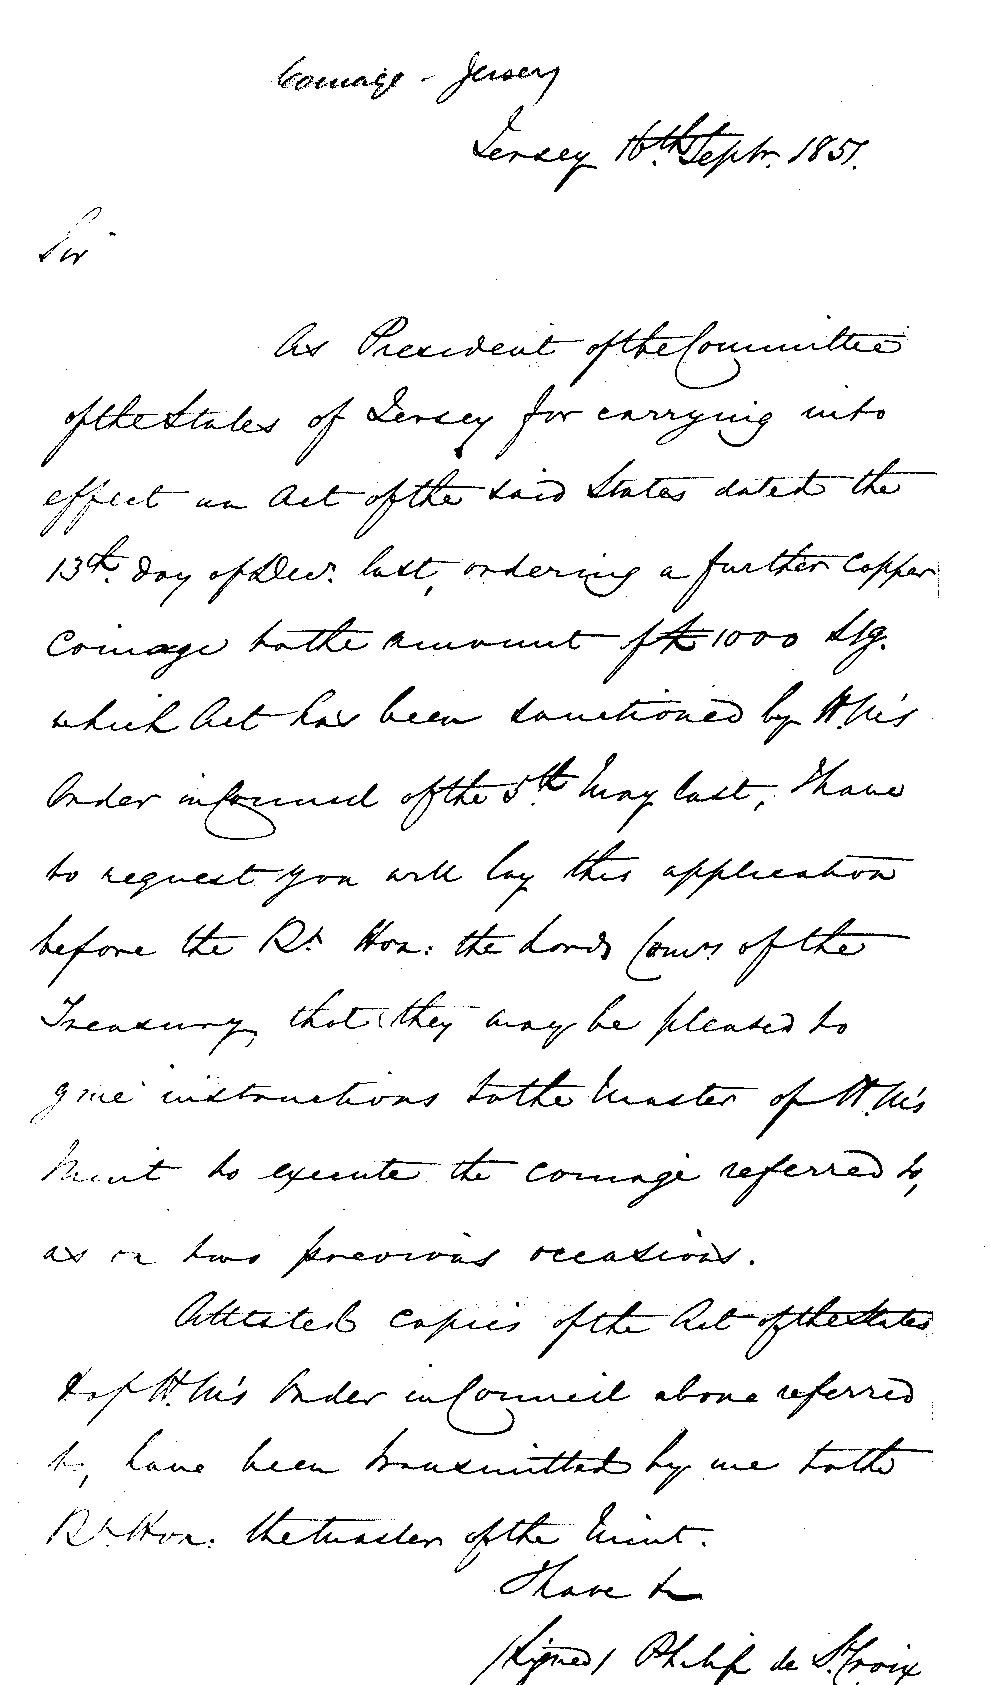 Coinage - Jersey
Jersey 16th Septr. 1851.
Sir
As President of the Committee
of the States of Jersey for carrying into
effect an Act of the said States dated the
13th. day of Decr. last, ordering a further Copper
Coinage to the amount of £1000 Stg.
which Act has been sanctioned by H.M's
Order in Council of the 5th May last, I have
to request you will lay this application
before the Rt Hon: the Lords Comrs of the
Treasury, that they may be pleased to
give instructions to the Master of H.M's
Mint to execute the coinage referred to,
as on two previous occasions.
Attested copies of the Act of the States
& of H.M's Order in Council above referred
to, have been transmitted by me to the
Rt. Hon: the Master of the Mint.
I have &
/Signed/ Philip de St. Croix